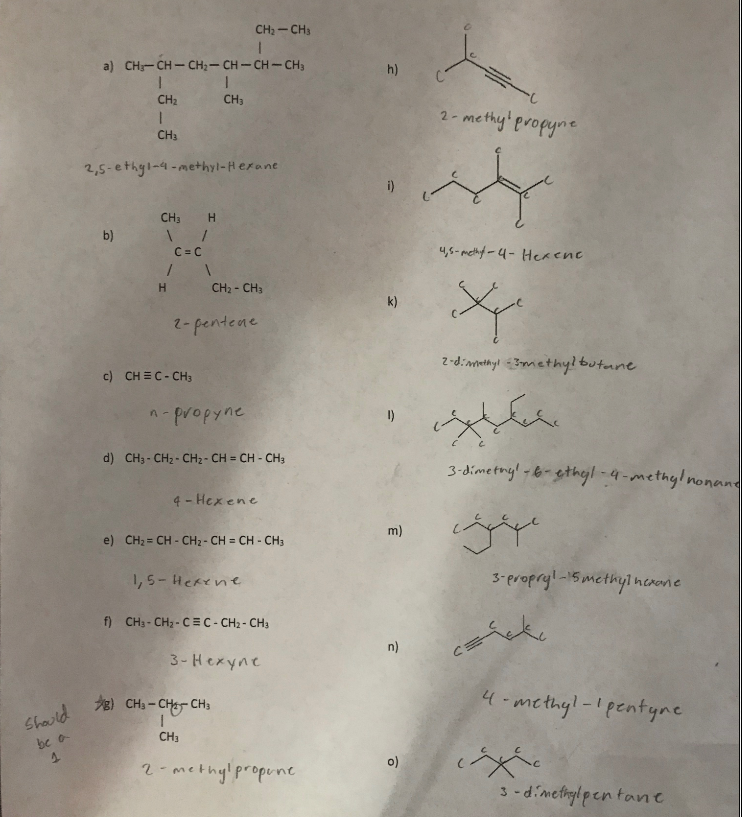 CH₂ — CH₃
|
a) CH₃— CH — CH₂ — CH — CH — CH₃
| |
CH₂ CH₃
|
CH₃
2,5-ethyl-4-methyl-Hexane
b) CH₃ H
\ /
C = C
/ \
H CH₂ - CH₃
2-pentene
c) CH ≡ C - CH₃
n-propyne
d) CH₃ - CH₂ - CH₂ - CH = CH - CH₃
4-Hexene
e) CH₂ = CH - CH₂ - CH = CH - CH₃
1,5-Hexene
f) CH₃ - CH₂ - C ≡ C - CH₂ - CH₃
3-Hexyne
g) CH₃ — CH₂ — CH₃
|
CH₃
Should
be a
1
2-methylpropane
h) C
C C
C
2-methylpropyne
i) C
C C C C
C C
C
4,5-methyl-4-Hexene
k) C C
C C
C
2-dimethyl-3methylbutane
l) C C C C C
C C C
C C
3-dimethyl-6-ethyl-4-methylnonane
m) C C C C C C
3-propryl-5methylhexane
n) C C C C C
4-methyl-1pentyne
o) C C C C C
3-dimethylpentane